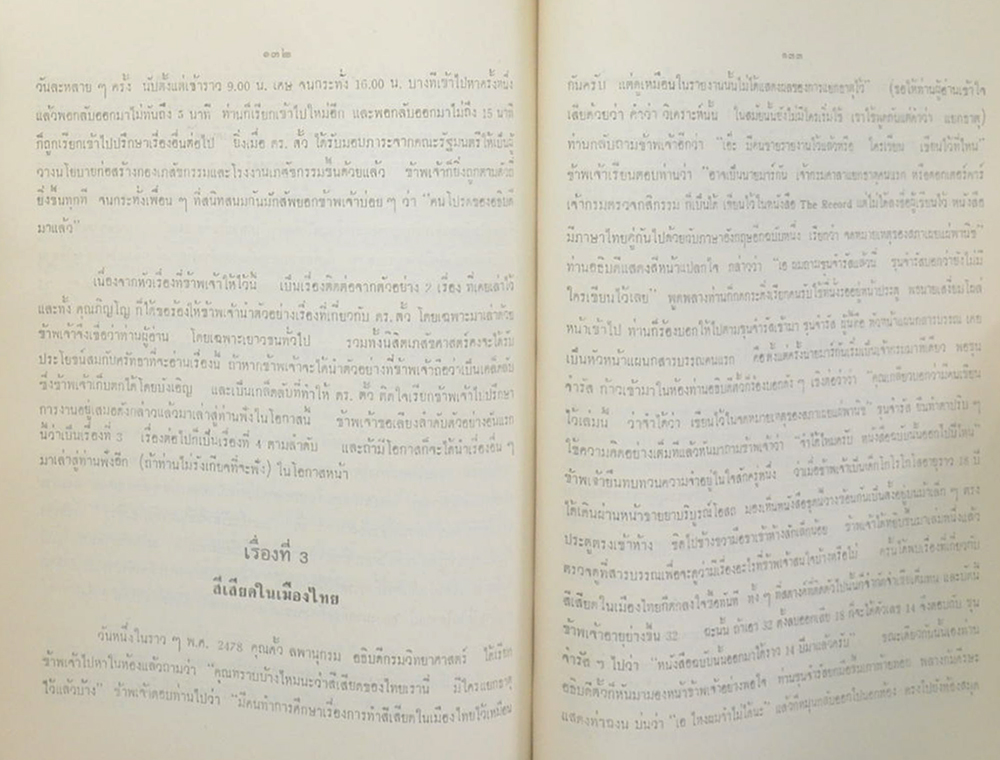 ๑๓๒
วันละหลาย ๆ ครั้ง นับตั้งแต่เช้าราว 9.00 น. เศษ จนกระทั่ง 16.00 น. บางทีเข้าไปหาครั้งหนึ่ง
แล้วพอกลับออกมาไม่ทันถึง 5 นาที ท่านก็เรียกเข้าไปใหม่อีก และพอกลับออกมาไม่ถึง 15 นาที
ก็ถูกเรียกเข้าไปปรึกษาเรื่องอื่นต่อไป ยิ่งเมื่อ ดร. ตั้ว ได้รับมอบภาระจากคณะรัฐมนตรีให้เป็นผู้
วางนโยบายก่อสร้างกองเภสัชกรรมและโรงงานเภสัชกรรมขึ้นด้วยแล้ว ข้าพเจ้าก็ยิ่งถูกตามตัวถี่
ยิ่งขึ้นทุกที จนกระทั่งเพื่อน ๆ ที่สนิทสนมกันมักล้อพยอกข้าพเจ้าบ่อย ๆ ว่า "คนโปรดของอธิบดี
มาแล้ว"
เนื่องจากหัวเรื่องที่ข้าพเจ้าให้ไว้นี้ เป็นเรื่องติดต่อจากตัวอย่าง 2 เรื่อง ที่เคยเล่าไว้
และทั้ง คุณภิญโญ ก็ได้ขอร้องให้ข้าพเจ้านำตัวอย่างเรื่องที่เกี่ยวกับ ดร. ตั้ว โดยเฉพาะมาเล่าด้วย
ข้าพเจ้าจึงเชื่อว่าท่านผู้อ่าน โดยเฉพาะเยาวชนทั่วไป รวมทั้งนิสิตเภสัชศาสตร์คงจะได้รับ
ประโยชน์สมกับศรัทธาที่จะอ่านเรื่องนี้ ถ้าหากข้าพเจ้าจะได้นำตัวอย่างที่ข้าพเจ้าถือว่าเป็นเคล็ดลับ
ซึ่งข้าพเจ้าเก็บตกได้โดยบังเอิญ และเป็นเกล็ดลับที่ทำให้ ดร. ตั้ว ติดใจเรียกข้าพเจ้าไปปรึกษา
การงานอยู่เสมอดังกล่าวแล้วมาเล่าสู่ท่านฟังในโอกาสนี้ ข้าพเจ้าขอเลียงลำดับตัวอย่างอันแรก
นี้ว่าเป็นเรื่องที่ 3 เรื่องต่อไปก็เป็นเรื่องที่ 4 ตามลำดับ และถ้ามีโอกาสก็จะได้นำเรื่องอื่น ๆ
มาเล่าสู่ท่านฟังอีก (ถ้าท่านไม่รังเกียจที่จะฟัง) ในโอกาสหน้า
เรื่องที่ 3
สีเสียดในเมืองไทย
วันหนึ่งในราว ๆ พ.ศ. 2478 คุณตั้ว ลพานุกรม อธิบดีกรมวิทยาศาสตร์ ได้เรียก
ข้าพเจ้าไปหาในห้องแล้วถามว่า "คุณทราบบ้างไหมนะว่าสีเสียดของไทยเรานี่ มีใครแยกธาตุ
ไว้แล้วบ้าง" ข้าพเจ้าตอบท่านไปว่า "มีคนทำการศึกษาเรื่องการทำสีเสียดในเมืองไทยไว้เหมือน
๑๓๓
กันครับ แต่ดูเหมือนในรายงานนั้นไม่ได้แสดงผลของการแยกธาตุไว้" (ขอให้ท่านผู้อ่านเข้าใจ
เสียด้วยว่า คำว่า วิเคราะห์นั้น ในสมัยนั้นยังไม่มีใครเริ่มใช้ เราใช้พูดกันแต่คำว่า แยกธาตุ)
ท่านกลับถามข้าพเจ้าอีกว่า "เอ๊ะ มีคนรายงานไว้แล้วหรือ ใครเขียน เขียนไว้ที่ไหน"
ข้าพเจ้าเรียนตอบท่านว่า "อาจเป็นนายมาร์กัน เจ้ากรมศาลาแยกธาตุคนแรก หรือดอกเตอร์พาร์
เจ้ากรมตรวจกสิกรรม ก็เป็นได้ เขียนไว้ในหนังสือ The Record แต่ไม่ได้ลงชื่อผู้เขียนไว้ หนังสือ
มีภาษาไทยคู่กันไปด้วยกับภาษาอังกฤษอีกฉบับหนึ่ง เรียกว่า จดหมายเหตุของสภาเผยแผ่พานิช"
ท่านอธิบดีแสดงสีหน้าแปลกใจ กล่าวว่า "เอ ผมถามขุนจำรัสแล้วนี่ ขุนจำรัสบอกว่ายังไม่มี
ใครเขียนไว้เลย" พูดพลางท่านก็กดกระดิ่งเรียกคนรับใช้ที่นั่งรออยู่หน้าประตู พอนายเสงี่ยมโผล่
หน้าเข้าไป ท่านก็ร้องบอกให้ไปตามขุนจำรัสเข้ามา ขุนจำรัส ผู้นี้คือ หัวหน้าแผนกสารบรรณ เคย
เป็นหัวหน้าแผนกสารบรรณคนแรก คือตั้งแต่ครั้งนายมาร์กันเริ่มเป็นเจ้ากรมมาทีเดียว พอขุน
จำรัส ก้าวเข้ามาในห้องท่านอธิบดีตั้วก็ร้องบอกดัง ๆ เชิงต่อว่าว่า "คุณเกษียวบอกว่ามีคนเขียน
ไว้เล่มนี้ ว่าจำได้ว่า เขียนไว้ในจดหมายเหตุของสภาเผยแผ่พานิช" ขุนจำรัส ยืนทำตาปริบ ๆ
ใช้ความคิดอย่างเต็มที่แล้วหันมาถามข้าพเจ้าว่า "จำได้ไหมครับ หนังสือฉบับนั้นออกไปปีไหน"
ข้าพเจ้ายืนทบทวนความจำอยู่ในใจสักครู่หนึ่ง ว่าเมื่อข้าพเจ้าเป็นเด็กโกโรโกโสอายุราว 18 ปี
ได้เดินผ่านหน้าขายยาบริบูรณ์โอสถ มองเห็นหนังสือชุดนี้วางซ้อนกันเป็นตั้งอยู่บนม้าเล็ก ๆ ตรง
ประตูตรงเข้าห้าง ชิดไปข้างขวามือขาเข้าห้างสักเล็กน้อย ข้าพเจ้าได้หยิบขึ้นมาเล่มหนึ่งแล้ว
ตรวจดูที่สารบรรณเพื่อจะดูว่ามีเรื่องอะไรที่ข้าพเจ้าสนใจบ้างหรือไม่ ครั้นได้พบเรื่องที่เกี่ยวกับ
สีเสียดในเมืองไทยก็ตกลงใจซื้อทันที ทั้ง ๆ ที่สตางค์ที่ติดตัวไปนั้นก็จำกัดจำเขียเต็มทน และบัดนี้
ข้าพเจ้าอายุย่างขึ้น 32 ฉะนั้น ถ้าเอา 32 ตั้งลบออกเสีย 18 ก็จะได้ตัวเลข 14 จึงตอบกับ ขุน
จำรัส ฯ ไปว่า "หนังสือฉบับนั้นออกมาได้ราว 14 ปีมาแล้วครับ" ขณะเดียวกันนั้นเองท่าน
อธิบดีตั้วก็หันมามองหน้าข้าพเจ้าอย่างพอใจ ท่านขุนจำรัสยกมือขึ้นเกาท้ายทอย พลางก้มศีรษะ
แสดงท่าฉงน บ่นว่า "เอ ไหงผมจำไม่ได้นะ" แล้วก็หมุนกลับออกไปนอกห้อง ตรงไปยังห้องสมุด